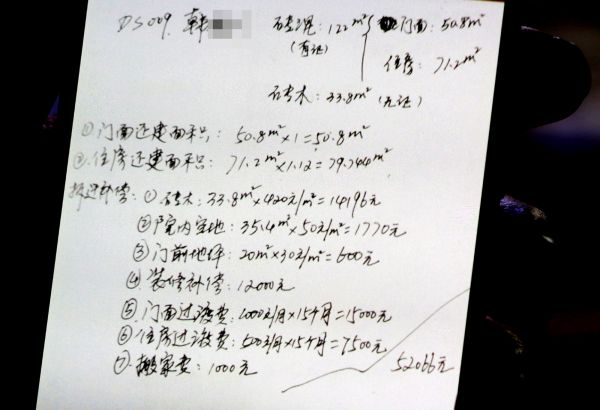 DS009. 韩
砖混: 122m² 门面: 50.8m²
(有证) 住房: 71.2m²
砖木: 33.8m² (无证)
①门面还建面积: 50.8m²×1=50.8m²
②住房还建面积: 71.2m²×1.12=79.744m²
拆迁补偿: ①砖木: 33.8m²×420元/m²=14196元
②院内空地: 35.4m²×50元/m²=1770元
③门前地坪: 20m²×30元/m²=600元
④装修补偿: 12000元
⑤门面过渡费: 1000元/月×15个月=15000元
⑥住房过渡费: 500元/月×15个月=7500元
⑦搬家费: 1000元
52066元